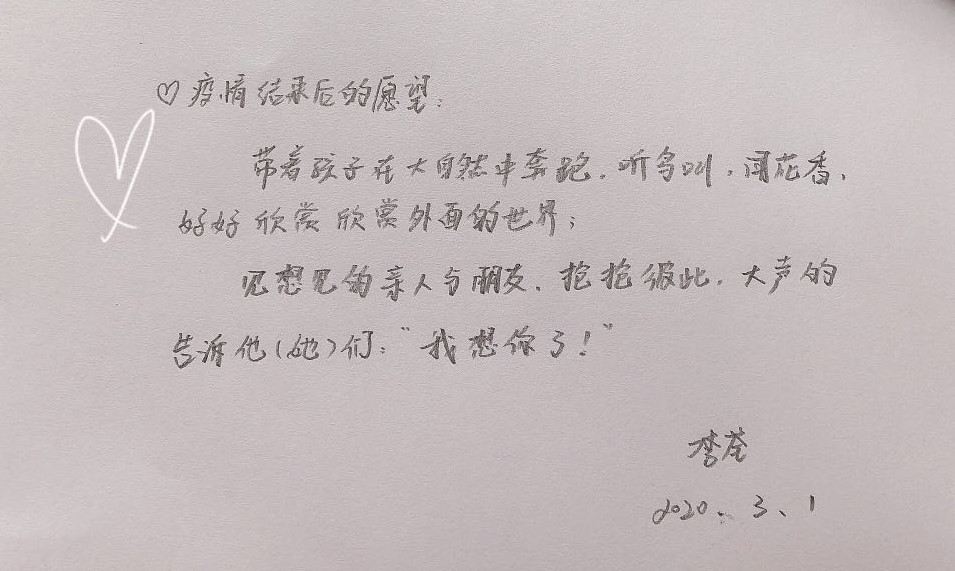 ♡疫情结束后的愿望：
带着孩子在大自然中奔跑，听鸟叫，闻花香，
好好欣赏欣赏外面的世界；
见想见的亲人与朋友，抱抱彼此，大声的
告诉他（她）们：“我想你了！”
李荃
2020、3、1